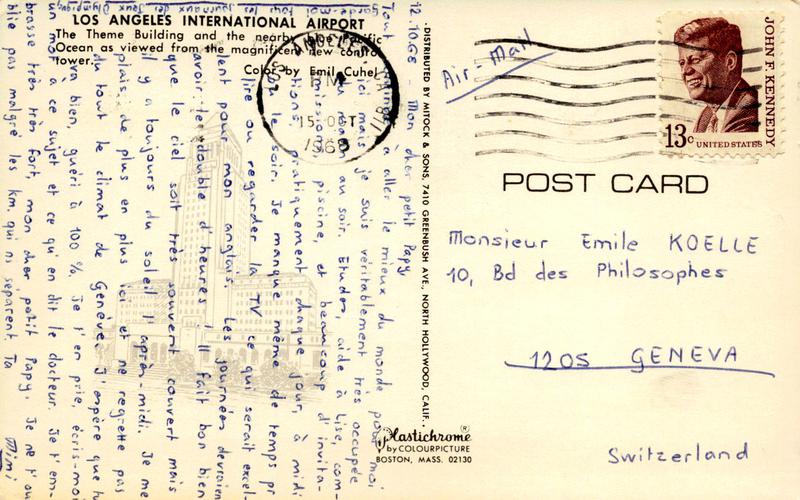 LOS ANGELES INTERNATIONAL AIRPORT
The Theme Building and the nearby blue Pacific
Ocean as viewed from the magnificent new control
tower.
Color by Emil Cuhel
12.10.68 - Mon cher petit Papy,
Tout continue à aller le mieux du monde pour moi
ici, mais je suis véritablement très occupée
du matin au soir. Etudes, aide à Lise, com-
missions, piscine, et beaucoup d'invita-
tions, pratiquement chaque jour, à midi
ou le soir. Je manque même de temps pr
lire ou regarder la TV ce qui serait excel-
lent pour mon anglais. Les journées devraient
avoir le double d'heures ! Il fait bon bien
que le ciel soit très souvent couvert mais
il y a toujours du soleil l'après-midi. Je me
plais de plus en plus ici et ne regrette pas
du tout le climat de Genève. J'espère que tu
va bien, guéri à 100 %. Je t'en prie, écris-moi
un mot à ce sujet et ce qu'en dit le docteur. Je t'em-
brasse très très fort, mon cher petit Papy. Je ne t'ou
blie pas malgré les km. qui ns séparent Ta
Mimi
garde-moi tous les journaux des Jeux Olympiques
DISTRIBUTED BY MITOCK & SONS, 7410 GREENBUSH AVE., NORTH HOLLYWOOD, CALIF.
LOS ANGELES
PM
15 OCT
1968
Air-Mail
JOHN F. KENNEDY
13c UNITED STATES
POST CARD
Monsieur Emile KOELLE
10, Bd des Philosophes
1205 GENEVA
Switzerland
Plastichrome ®
by COLOURPICTURE
BOSTON, MASS. 02130